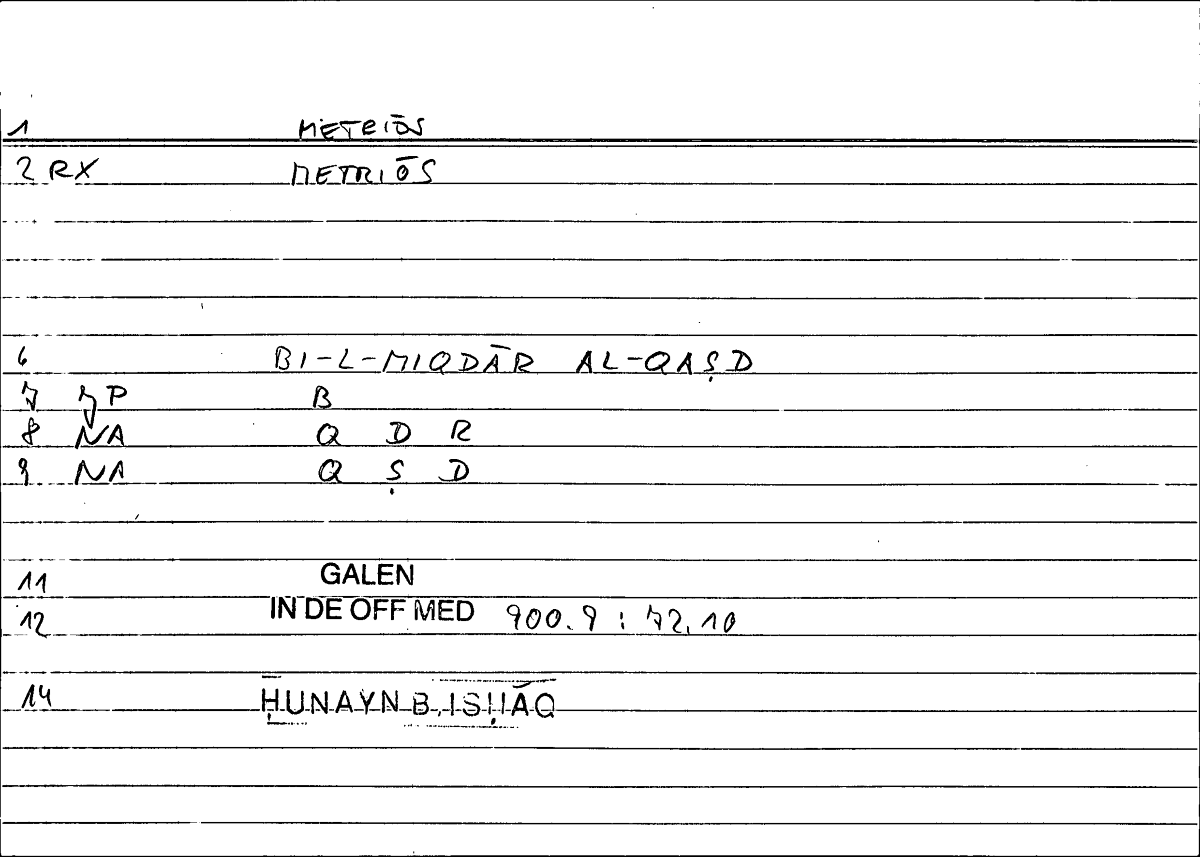 1 METRIŌS
2 RX METRIŌS
6 BI-L-MIQDĀR AL-QAṢD
7 JP B
8 NA Q D R
9 NA Q Ṣ D
11 GALEN
12 IN DE OFF MED 900.9 : 72.10
14 ḤUNAYN B. ISḤĀQ